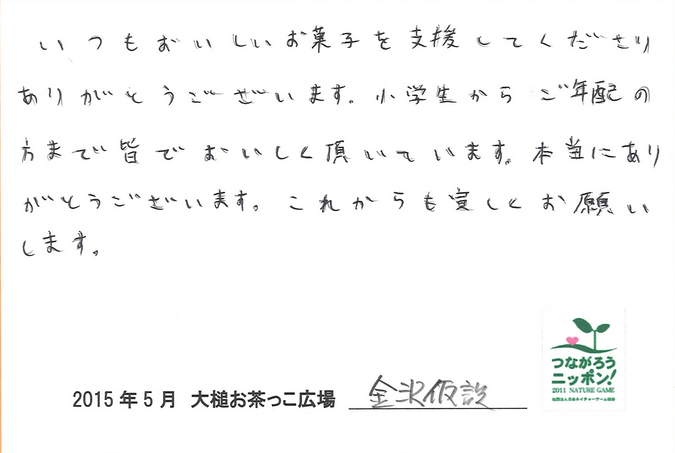 いつもおいしいお菓子を支援してくださり
ありがとうございます。小学生から ご年配の
方まで皆でおいしく頂いています。本当にあり
がとうございます。これからも宜しくお願い
します。
つながろう
ニッポン!
2011 NATURE GAME
社団法人日本ネイチャーゲーム協会
2015年5月 大槌お茶っこ広場 金沢仮設